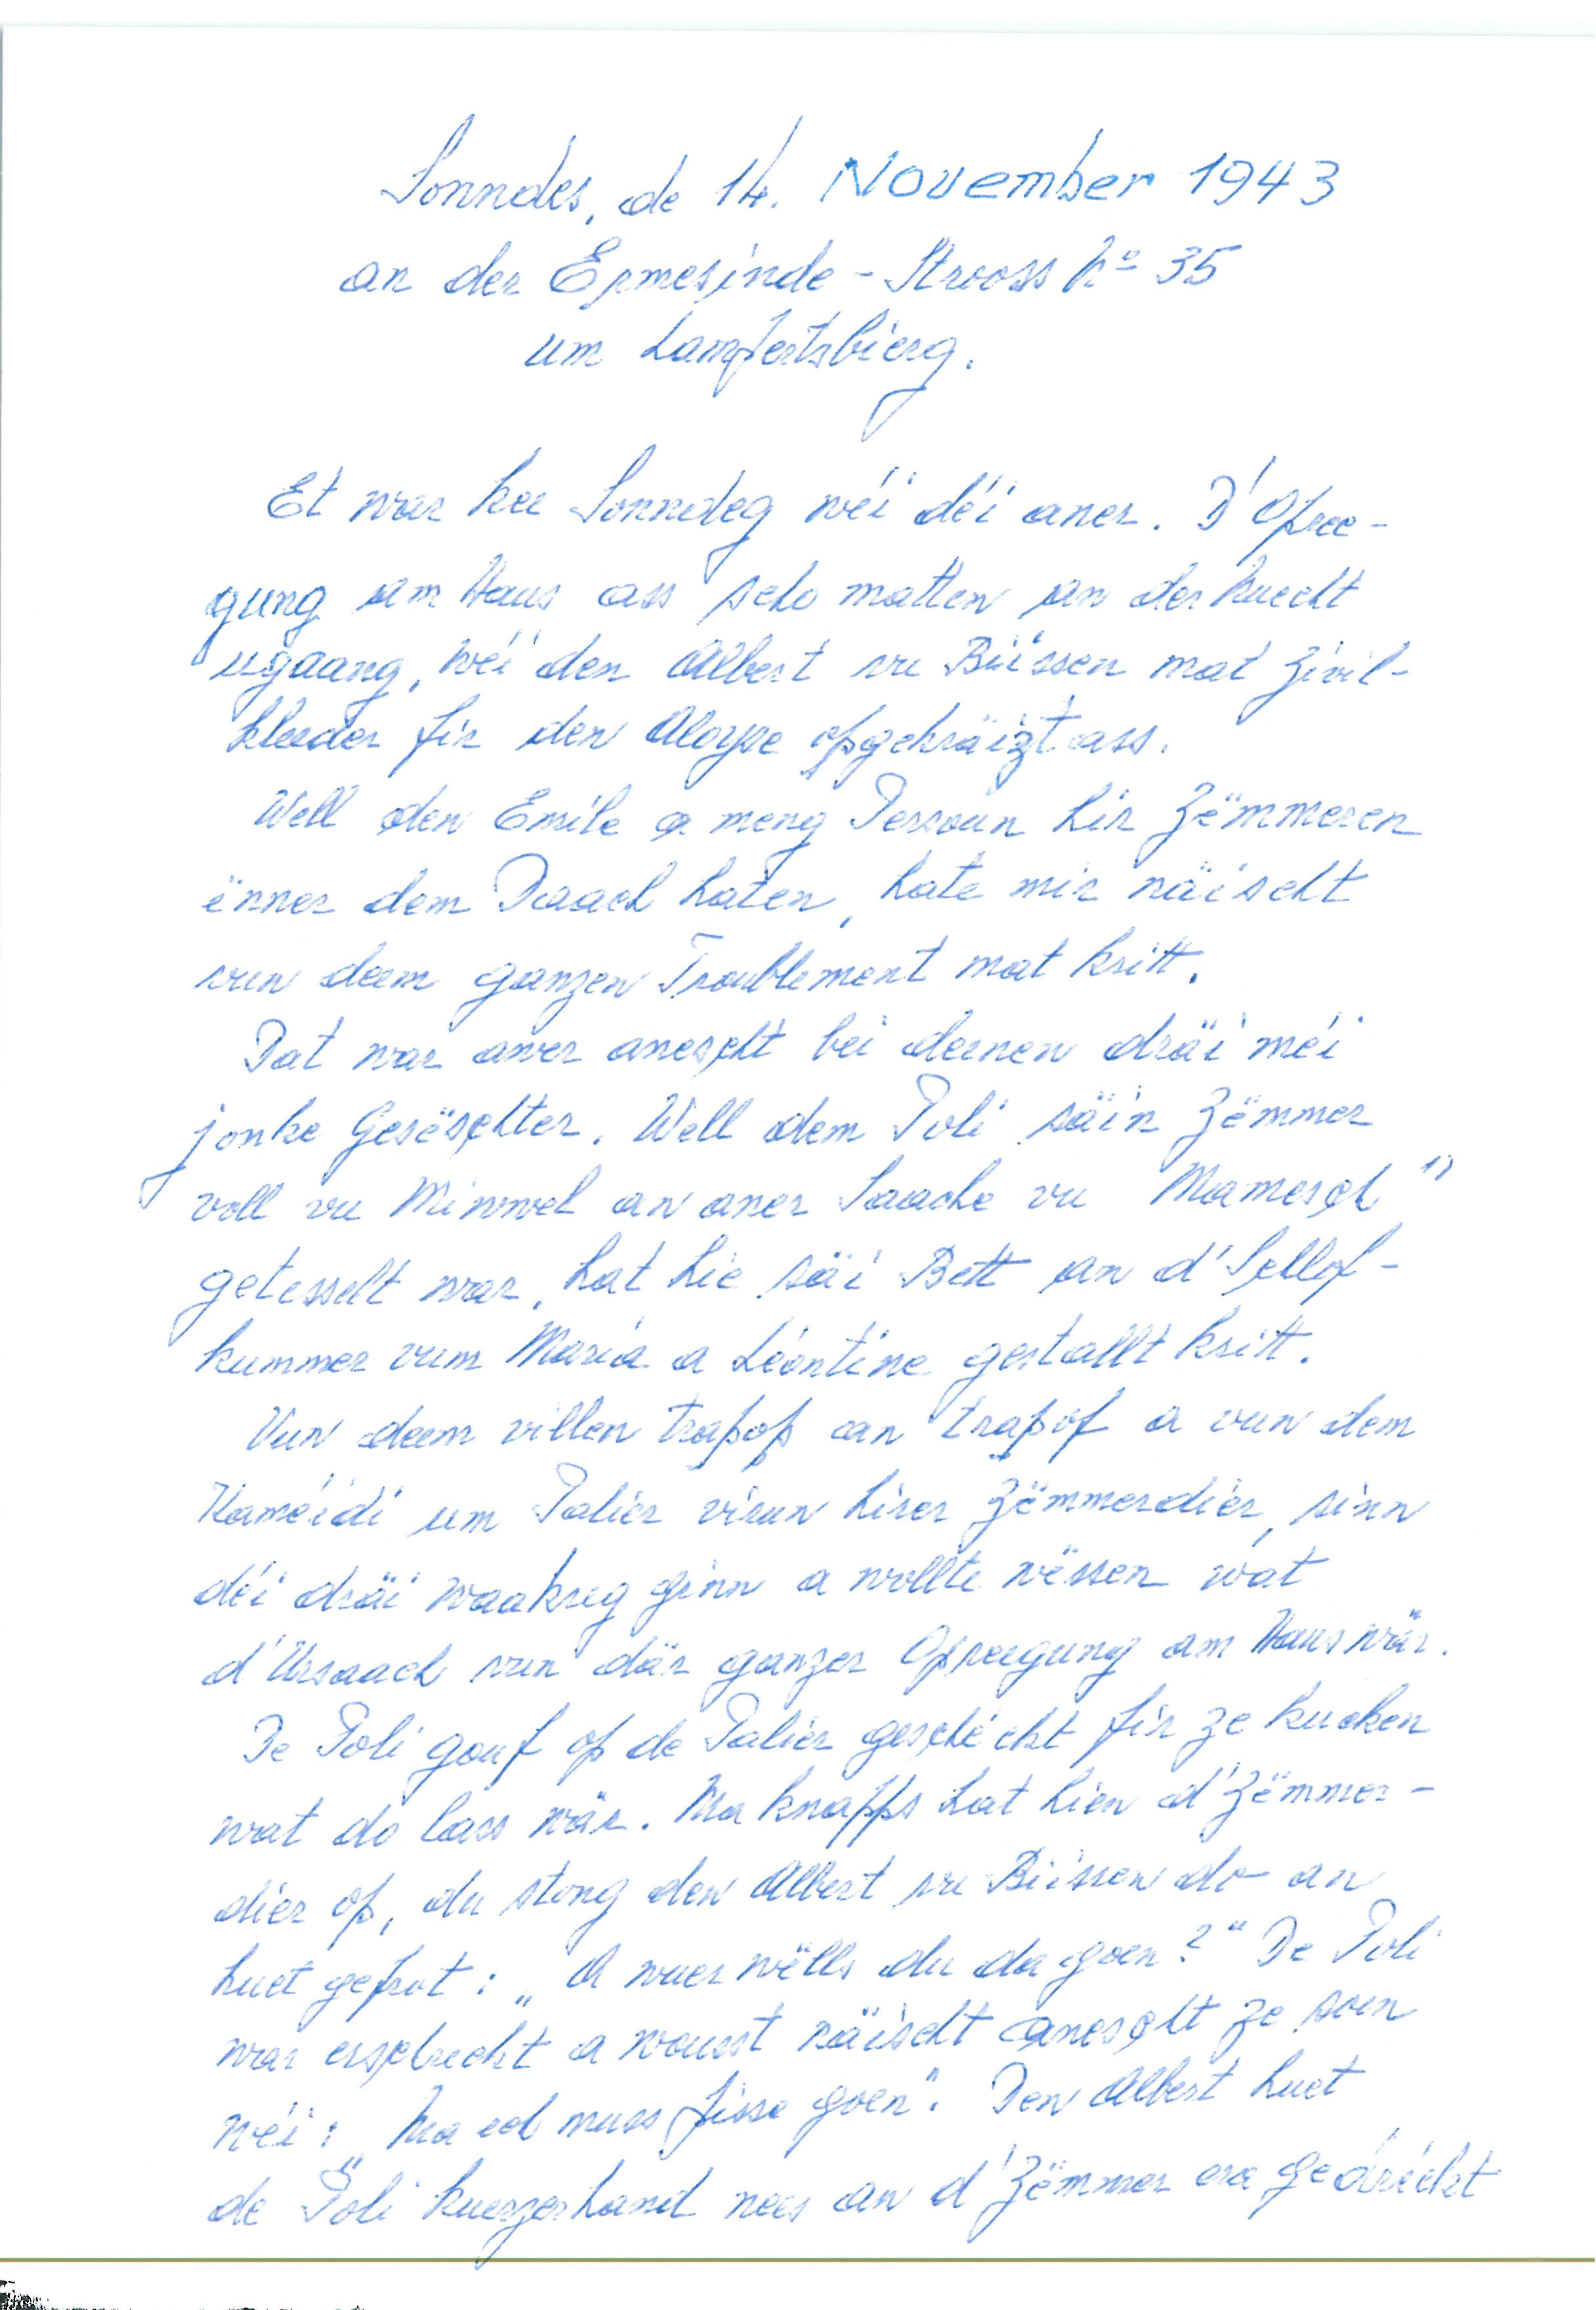 Sonndes, de 14. November 1943
an der Ermesinde - Strooss No 35
um Lampertsbierg.
Et war kee Sonndeg wéi déi aner. D'Opree-
gung am Haus ass scho matten an der Nuecht
ugaang, wéi den Albert vu Biissen mat Zivil-
kleeder fir den Aloyse opgekräizt ass.
Well den Emile a meng Persoun hir Zëmmeren
ënner dem Daach haten, hate mir näischt
vun deem ganzen Troublement mat kritt.
Dat war awer anescht bei deenen dräi méi
jonke Geschwëster. Well dem Poli säin Zëmmer
voll vu Miwwel an aner Saache vu "Mamesch"
getesselt war, hat hie säi Bett an d'Schlof-
kummer vum Maria a Léontine gestallt kritt.
Vun deem villen trapop an trapof a vun dem
Kaméidi um Palier virun hirer Zëmmerdier, sinn
déi dräi waakreg ginn a wollte wëssen wat
d'Ursaach vun där ganzer Opreegung am Haus wär.
De Poli gouf op de Palier geschéckt fir ze kucken
wat do lass wär. Ma knapps hat hien d'Zëmmer-
dier op, du stong den Albert vu Biissen do an
huet gefrot: „A wuer wëlls du da goen?" De Poli
war erschreckt a wousst näischt anescht ze soen
wéi: „Ma ech muss pisse goen". Den Albert huet
de Poli kuerzerhand nees an d'Zëmmer era gedréckt